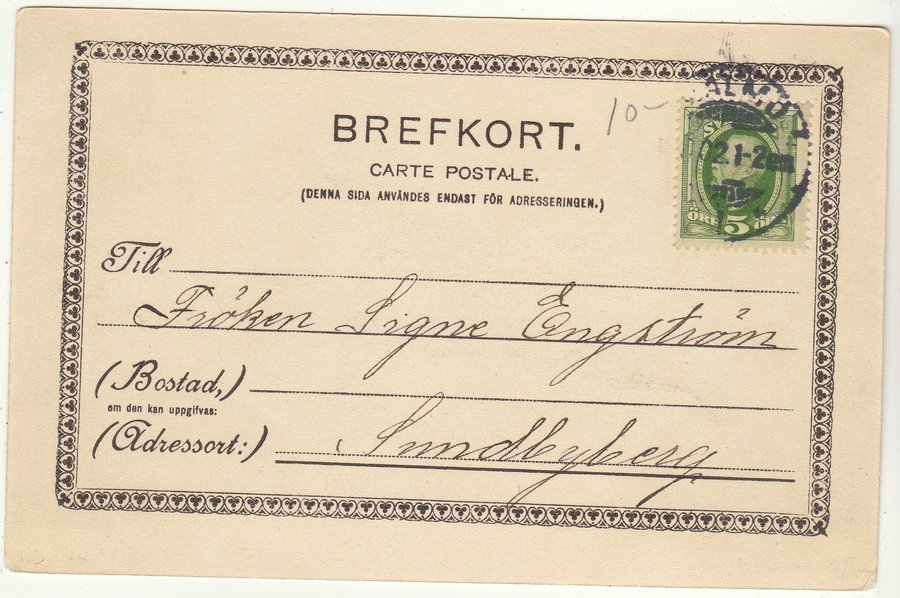 10-
BREFKORT.
CARTE POSTALE.
(DENNA SIDA ANVÄNDES ENDAST FÖR ADRESSERINGEN.)
ÖRE 5 ÖRE
Till
Fröken Signe Engström
(Bostad,)
om den kan uppgifvas:
(Adressort:) Sundbyberg